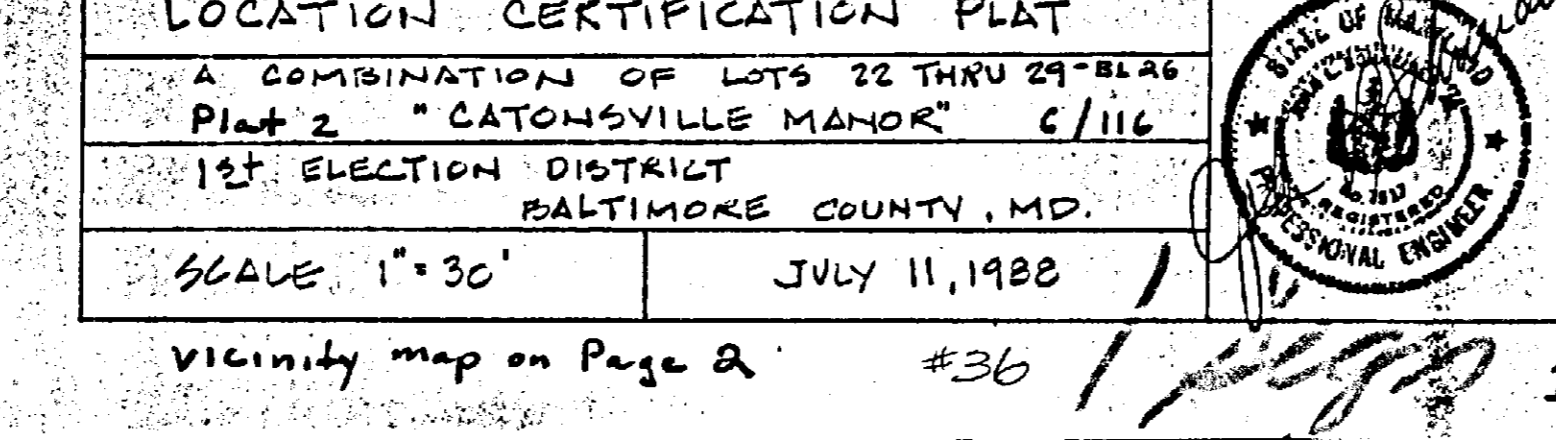 LOCATION CERTIFICATION PLAT
A COMBINATION OF LOTS 22 THRU 29-BL 26
Plat 2 "CATONSVILLE MANOR" 6/116
1st ELECTION DISTRICT
BALTIMORE COUNTY, MD.
SCALE 1"=30'
JULY 11, 1988
vicinity map on Page 2
#36
STATE OF MARYLAND
REGISTERED
PROFESSIONAL ENGINEER